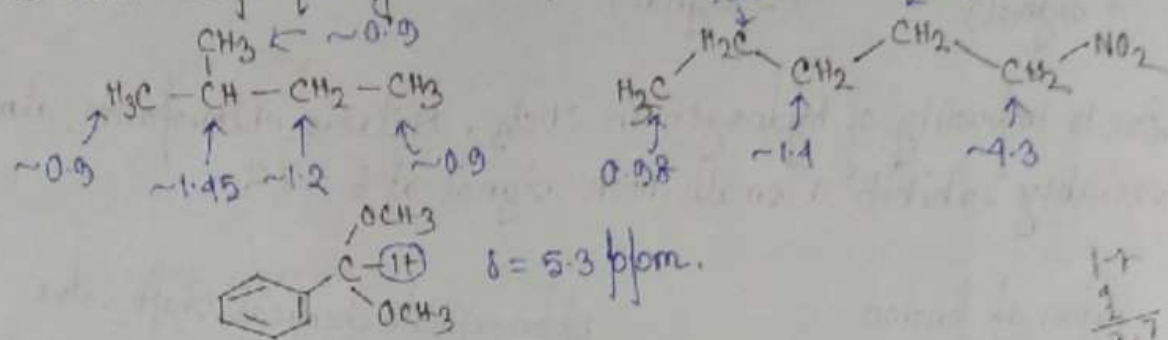 CH3 ← ~0.9
H3C - CH - CH2 - CH3
~0.9 ~1.45 ~1.2 ~0.9
H2C CH2 CH2 CH2 NO2
H2C
0.98 ~1.4 ~4.3
OCH3
C - H δ = 5.3 ppm.
OCH3